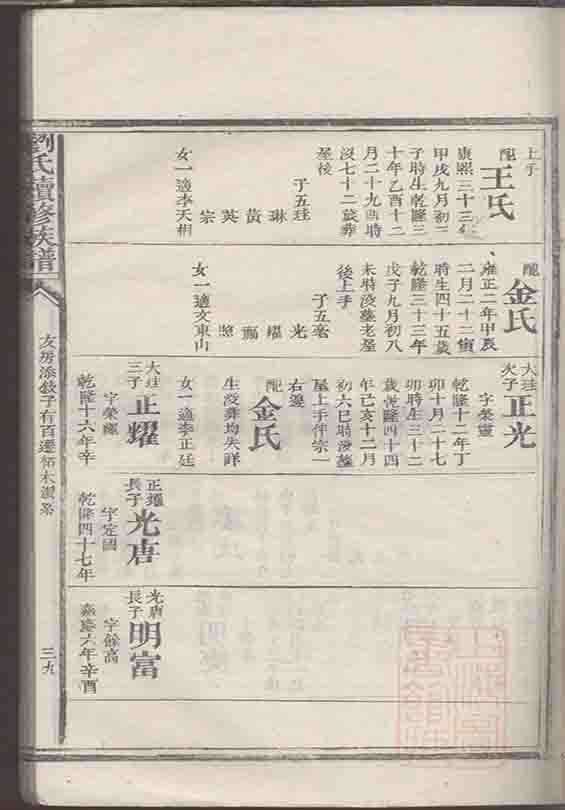 上手
配王氏
康熙三十三年
甲戌九月初二
子時生乾隆三
十年乙酉十二
月二十九酉時
沒七十二歲葬
屋後
子五
琳
黃
英
宗
女一適李天相
配金氏
雍正二年甲辰
二月二十二寅
時生四十五歲
乾隆三十三年
戊子九月初八
未時沒墓老屋
後上手
子五
光
耀
女一適文東山
次子正光
字榮靈
乾隆十二年丁
卯十月二十七
卯時生三十二
歲乾隆四十四
年己亥十二月
初六巳時沒墓
屋上手伴宗一
右邊
配金氏
生沒葬均失詳
女一適李正廷
三子正耀
字榮耀
乾隆十六年辛
正耀長子光唐
字定國
乾隆四十七年
光唐長子明富
字餘高
嘉慶六年辛酉
劉氏續修族譜
三九